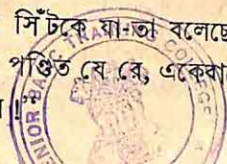 সিঁটকে যা-তা বলেছে
পণ্ডিত যে রে, একেবা
!"
SENIOR BASIC TRAINING COLLEGE